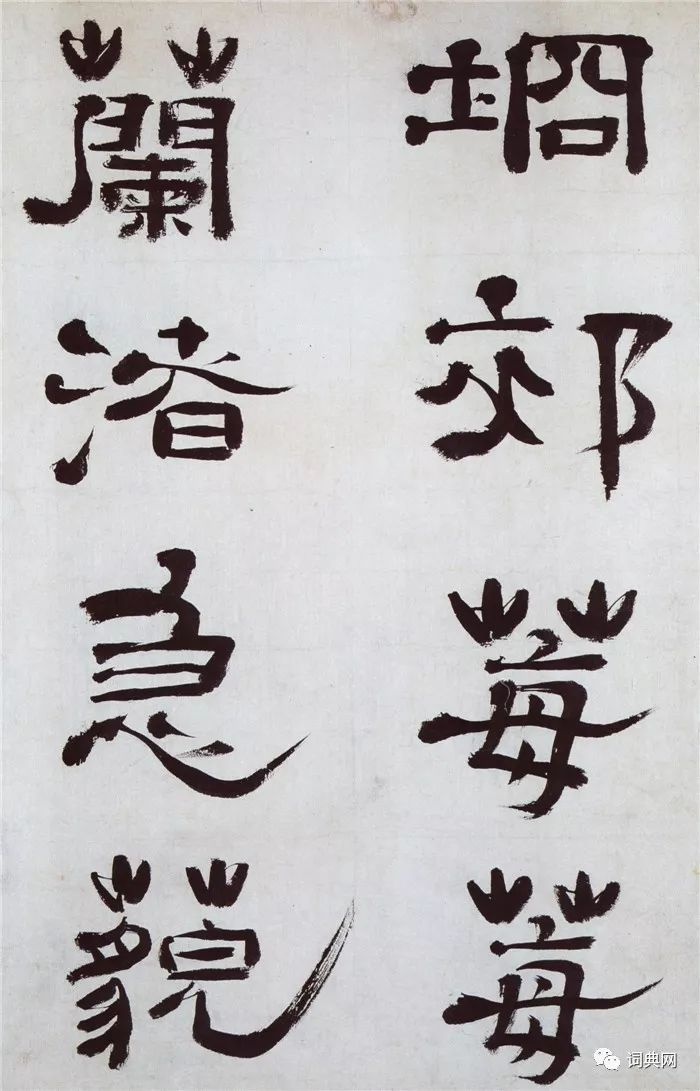 埛郊莓莓
蘭渚急藐
词典网